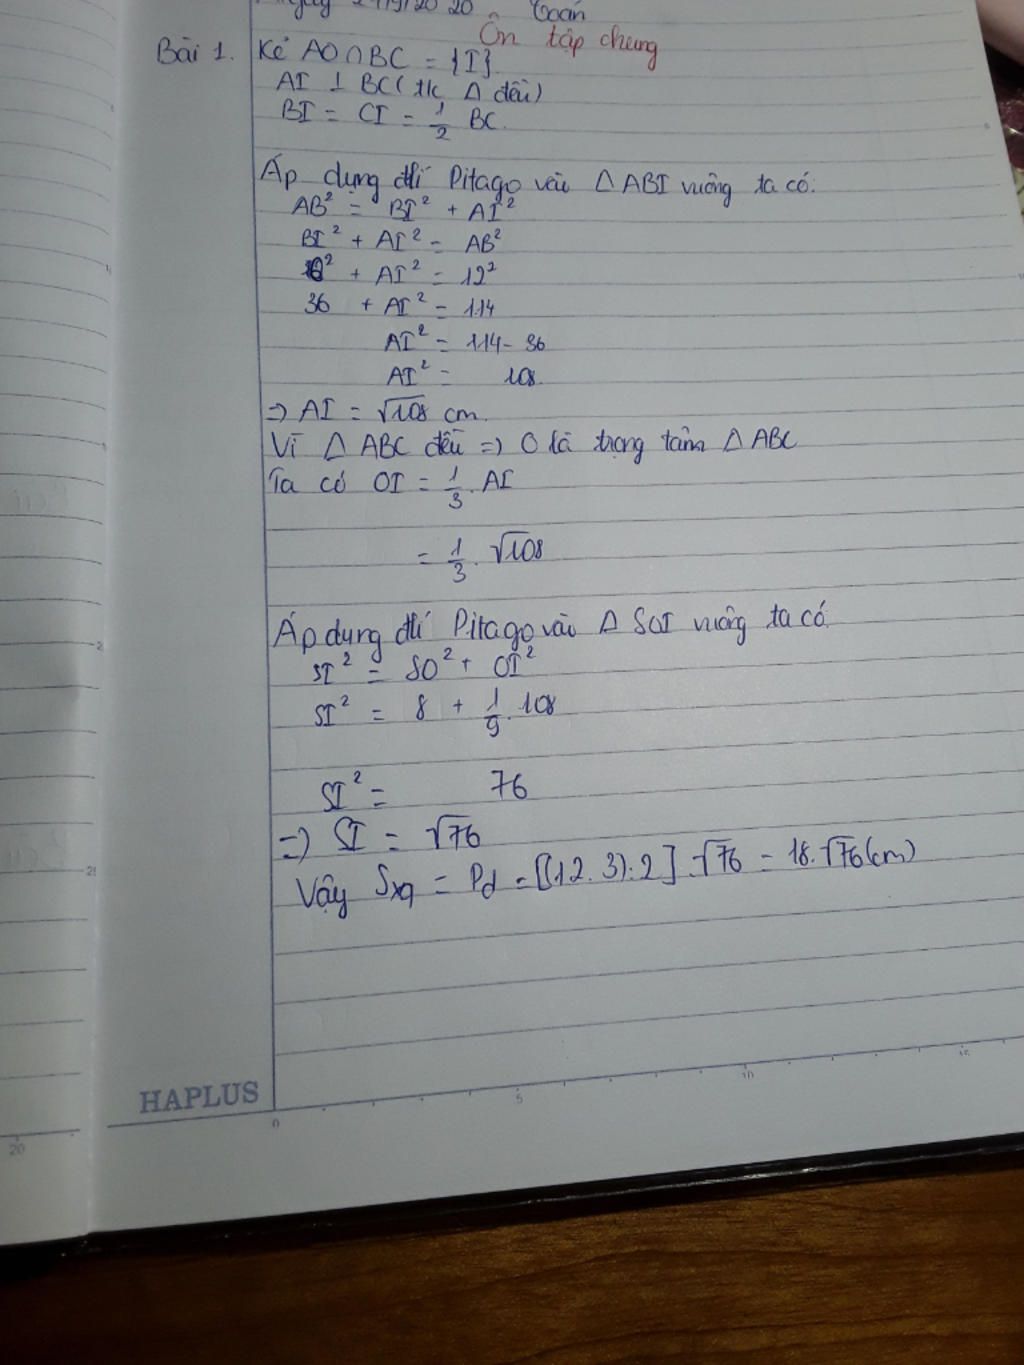 Ngày 24/9/2020 Toán
Ôn tập chung
Bài 1. Kẻ AO∩BC = {I}
AI ⊥ BC (t/c Δ đều)
BI = CI = 1/2 BC.
Áp dụng đlí Pitago vào ΔABI vuông ta có:
AB² = BI² + AI²
BI² + AI² = AB²
6² + AI² = 12²
36 + AI² = 114
AI² = 114 - 36
AI² = 108
=> AI = √108 cm.
Vì Δ ABC đều => O là trọng tâm Δ ABC
Ta có OI = 1/3 . AI
= 1/3 . √108
Áp dụng đlí Pitago vào Δ SOI vuông ta có
SI² = SO² + OI²
SI² = 8 + 1/9 . 108
SI² = 76
=> SI = √76
Vậy Sxq = Pd = [(12.3):2].√76 = 18.√76(cm)
HAPLUS
0 5 10 15
20